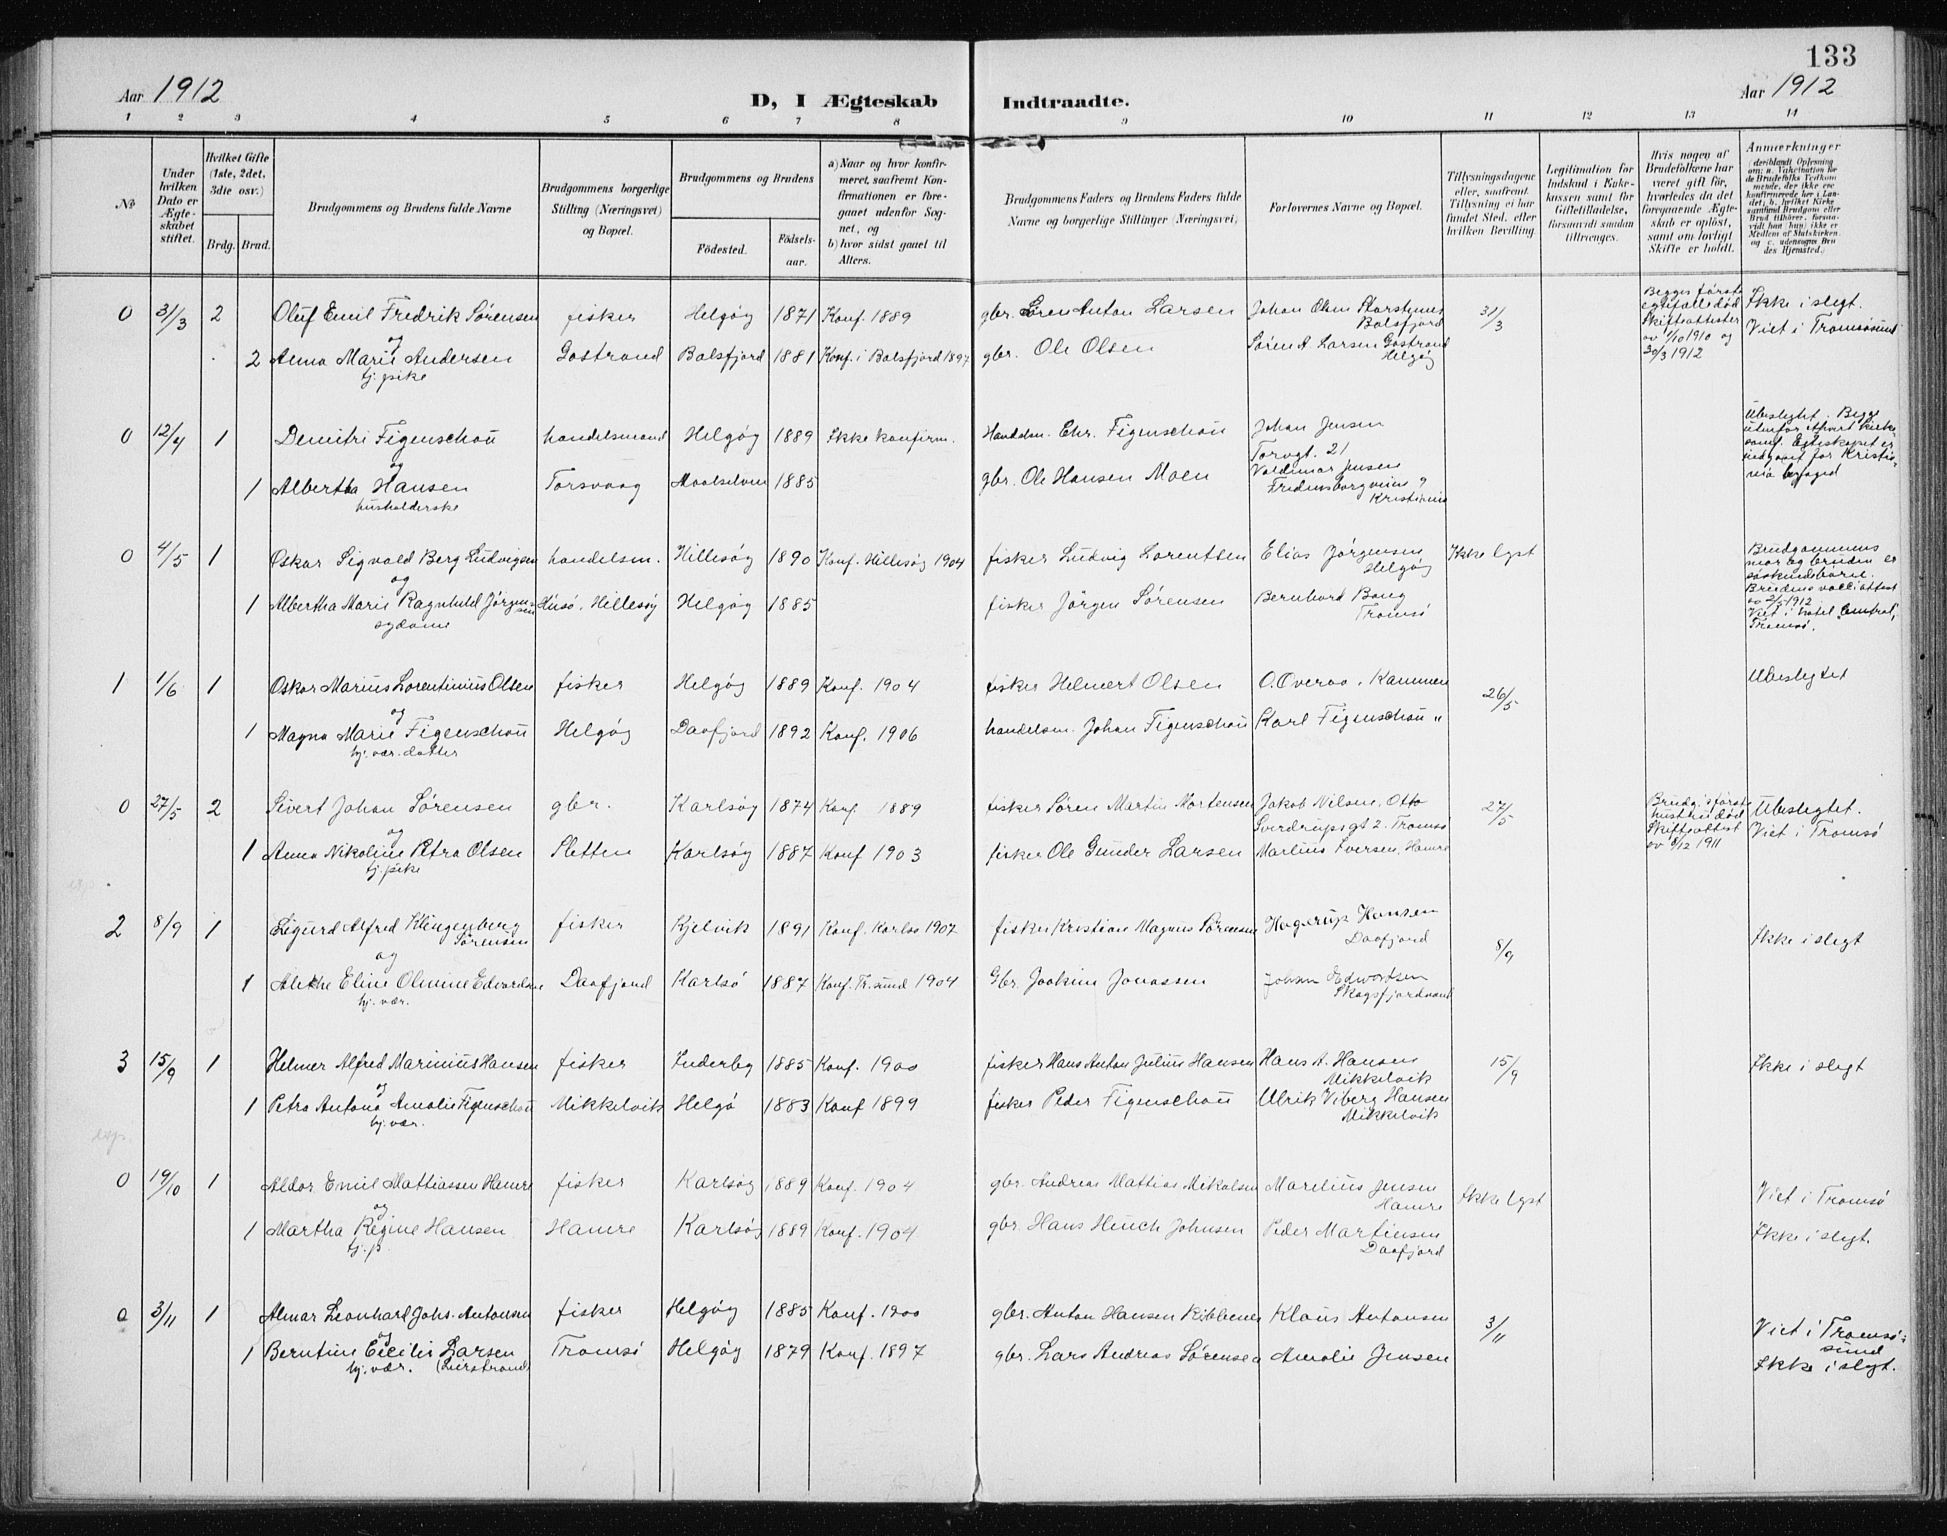 133
Aar 1912
D, I Ægteskab Indtraadte.
Aar 1912
1 2 3 4 5 6 7 8 9 10 11 12 13 14
No
Under hvilken Dato er Ægteskabet stiftet.
Hvilket Gifte (1ste, 2det, 3die osv.)
Brdg. Brud.
Brudgommens og Brudens fulde Navne
Brudgommens borgerlige Stilling (Næringsvei) og Bopæl.
Brudgommens og Brudens
Födested.
Födselsaar.
a) Naar og hvor konfirmeret, saafremt Konfirmationen er foregaaet udenfor Sognet, og
b) hvor sidst gaaet til Alters.
Brudgommens Faders og Brudens Faders fulde Navne og borgerlige Stillinger (Næringsvei)
Forlovernes Navne og Bopæl.
Tillysningsdagene eller, saafremt Tillysning ei har fundet Sted, efter hvilken Bevilling.
Legitimation for Indskud i Enkekassen samt for Giftetilladelse, forsaavidt saadan tiltrænges.
Hvis nogen af Brudefolkene har været gift för, hvorledes da det foregaaende Ægteskab er oplöst, samt om lovligt Skifte er holdt.
Anmærkninger
0 31/3 2 Oluf Emil Fredrik Sørensen fisker Helgøy 1871 Konf. 1889 gbr. Søren Anton Larsen Johan Olsen Storstennes Balsfjord 31/3 Begges første egtefælle død Skifteattester av 1/10 1910 og 30/3 1912 Ikke i slegt.
og
2 Anna Marie Andersen Gåstrand Balsfjord 1881 Konf. i Balsfjord 1897 gbr. Ole Olsen Søren A. Larsen Gåstrand Helgøy Viet i Tromsøsund
tj. pike
0 12/4 1 Demitri Figenschou handelsmand Helgøy 1889 Ikke konfirm. Handelsm. Chr. Figenschou Johan Jensen Torvgt. 21 Ubeslegtet. Begge utenfor ethvert kirkesamf. Egteskapet er indgaaet for Kristiania byfoged
og
1 Albertha Hansen Torsvaag Maalselven 1885 gbr. Ole Hansen Moen Valdemar Jensen Fredensborgveien 9 Kristiania
husholderske
0 4/5 1 Oskar Sigvald Berg Ludvigsen handelsm. Hillesøy 1890 Konf. Hillesøy 1904 fisker Ludvig Lorentsen Elias Jørgensen Helgøy Ikke lyst Brudgommens mor og bruden er søskendebarn. Brudens vacc.attest av 2/5 1912 Viet i hotel Central, Tromsø.
og
1 Albertha Marie Ragnhild Jørgensen Husø, Hillesøy Helgøy 1885 fisker Jörgen Sørensen Bernhard Bang Tromsø
sydame
1 1/6 1 Oskar Marius Lorentinius Olsen fisker Helgøy 1889 Konf. 1904 fisker Helmert Olsen O. Overaa, Kammen 26/5 Ubeslegtet
og
1 Magna Marie Figenschou Helgøy Daafjord 1892 Konf. 1906 handelsm. Johan Figenschou Karl Figenschou "
hj. vær. datter
0 27/5 2 Sivert Johan Sørensen gbr. Karlsøy 1874 Konf. 1889 fisker Søren Martin Mortensen Jakob Nilsen, Otto Sverdrupsgt 2. Tromsø 27/5 Brudg.s første hustru død Skifteattest av 1/12 1911 Ubeslegtet.
og
1 Anna Nikoline Petra Olsen Sletten Karlsøy 1887 Konf 1903 fisker Ole Gunder Larsen Marlius Iversen, Hamre Viet i Tromsø
tj. pike
2 8/9 1 Sigurd Alfred Klingenberg Sørensen fisker Kjelvik 1891 Konf. Karlsø 1907 fisker Kristian Magnus Sørensen Hagerup Hansen Daafjord 8/9 Ikke i slegt
og
1 Alethe Eline Olivine Edvardsen Daafjord Karlsø 1887 Konf. Tr.sund 1904 Gbr. Joakim Jonassen Johan Edvartsen Skogsfjordvand
hj. vær.
3 15/9 1 Helmer Alfred Marinius Hansen fisker Inderby 1885 Konf. 1900 fisker Hans Anton Julius Hansen Hans A. Hansen Mikkelvik 15/9 Ikke i slegt
og
1 Petra Antona Amalie Figenschou Mikkelvik Helgø 1883 Konf 1899 fisker Peder Figenschou Ulrik Viberg Hansen Mikkelvik
hj. vær.
0 19/10 1 Aldor Emil Mattiassen Hamre fisker Karlsøy 1889 Konf. 1904 gbr. Andreas Mattias Mikalsen Marelius Jensen Hamre Ikke lyst Viet i Tromsø
og
1 Martha Regine Hansen Hamre Karlsøy 1889 Konf. 1904 gbr. Hans Hinch Johnsen Peder Martinsen Daafjord Ikke i slegt.
tj. p.
0 3/11 1 Almar Leonhard Johs. Antonsen fisker Helgøy 1885 Konf. 1900 gbr. Anton Hansen Ribbenes Klaus Antonsen 3/11 Viet i Tromsøsund
og
1 Berntine Cecilie Larsen Tromsø Helgøy 1879 Konf. 1897 gbr. Lars Andreas Sørensen Amalie Jensen Ikke i slegt.
hj. vær.